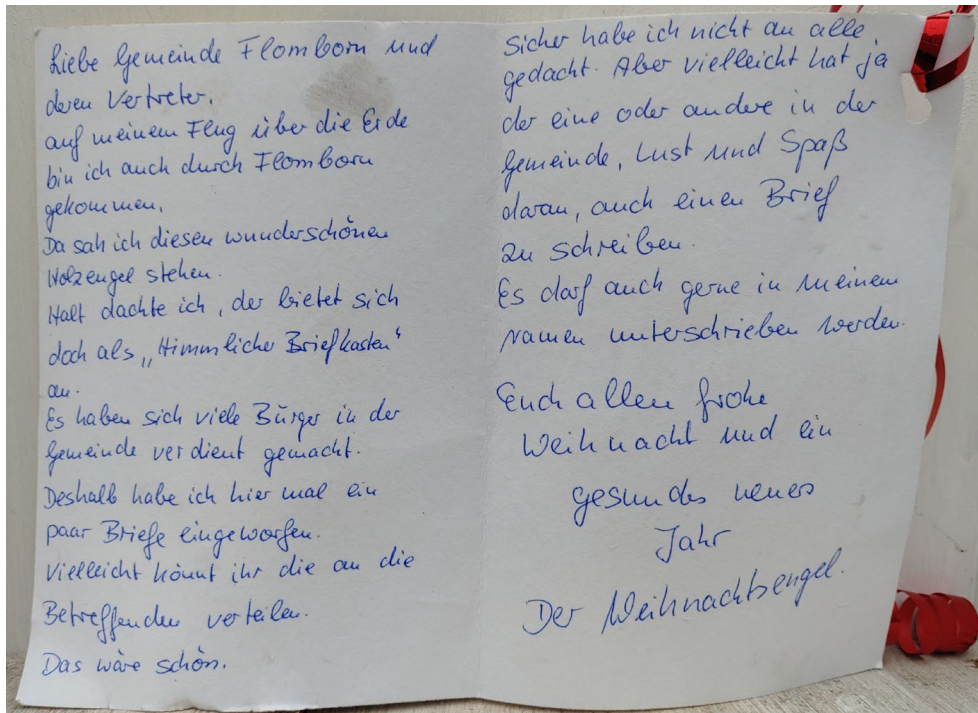 Liebe Gemeinde Flomborn und
deren Vertreter,
auf meinem Flug über die Erde
bin ich auch durch Flomborn
gekommen.
Da sah ich diesen wunderschönen
Holzengel stehen.
Halt dachte ich, der bietet sich
doch als „Himmlicher Briefkasten"
an.
Es haben sich viele Bürger in der
Gemeinde verdient gemacht.
Deshalb habe ich hier mal ein
paar Briefe eingeworfen.
Vielleicht könnt ihr die an die
Betreffenden verteilen.
Das wäre schön.
Sicher habe ich nicht an alle
gedacht. Aber vielleicht hat ja
der eine oder andere in der
Gemeinde, Lust und Spaß
daran, auch einen Brief
zu schreiben.
Es darf auch gerne in meinem
Namen unterschrieben werden.
Euch allen frohe
Weihnacht und ein
gesundes neues
Jahr
Der Weihnachtsengel.